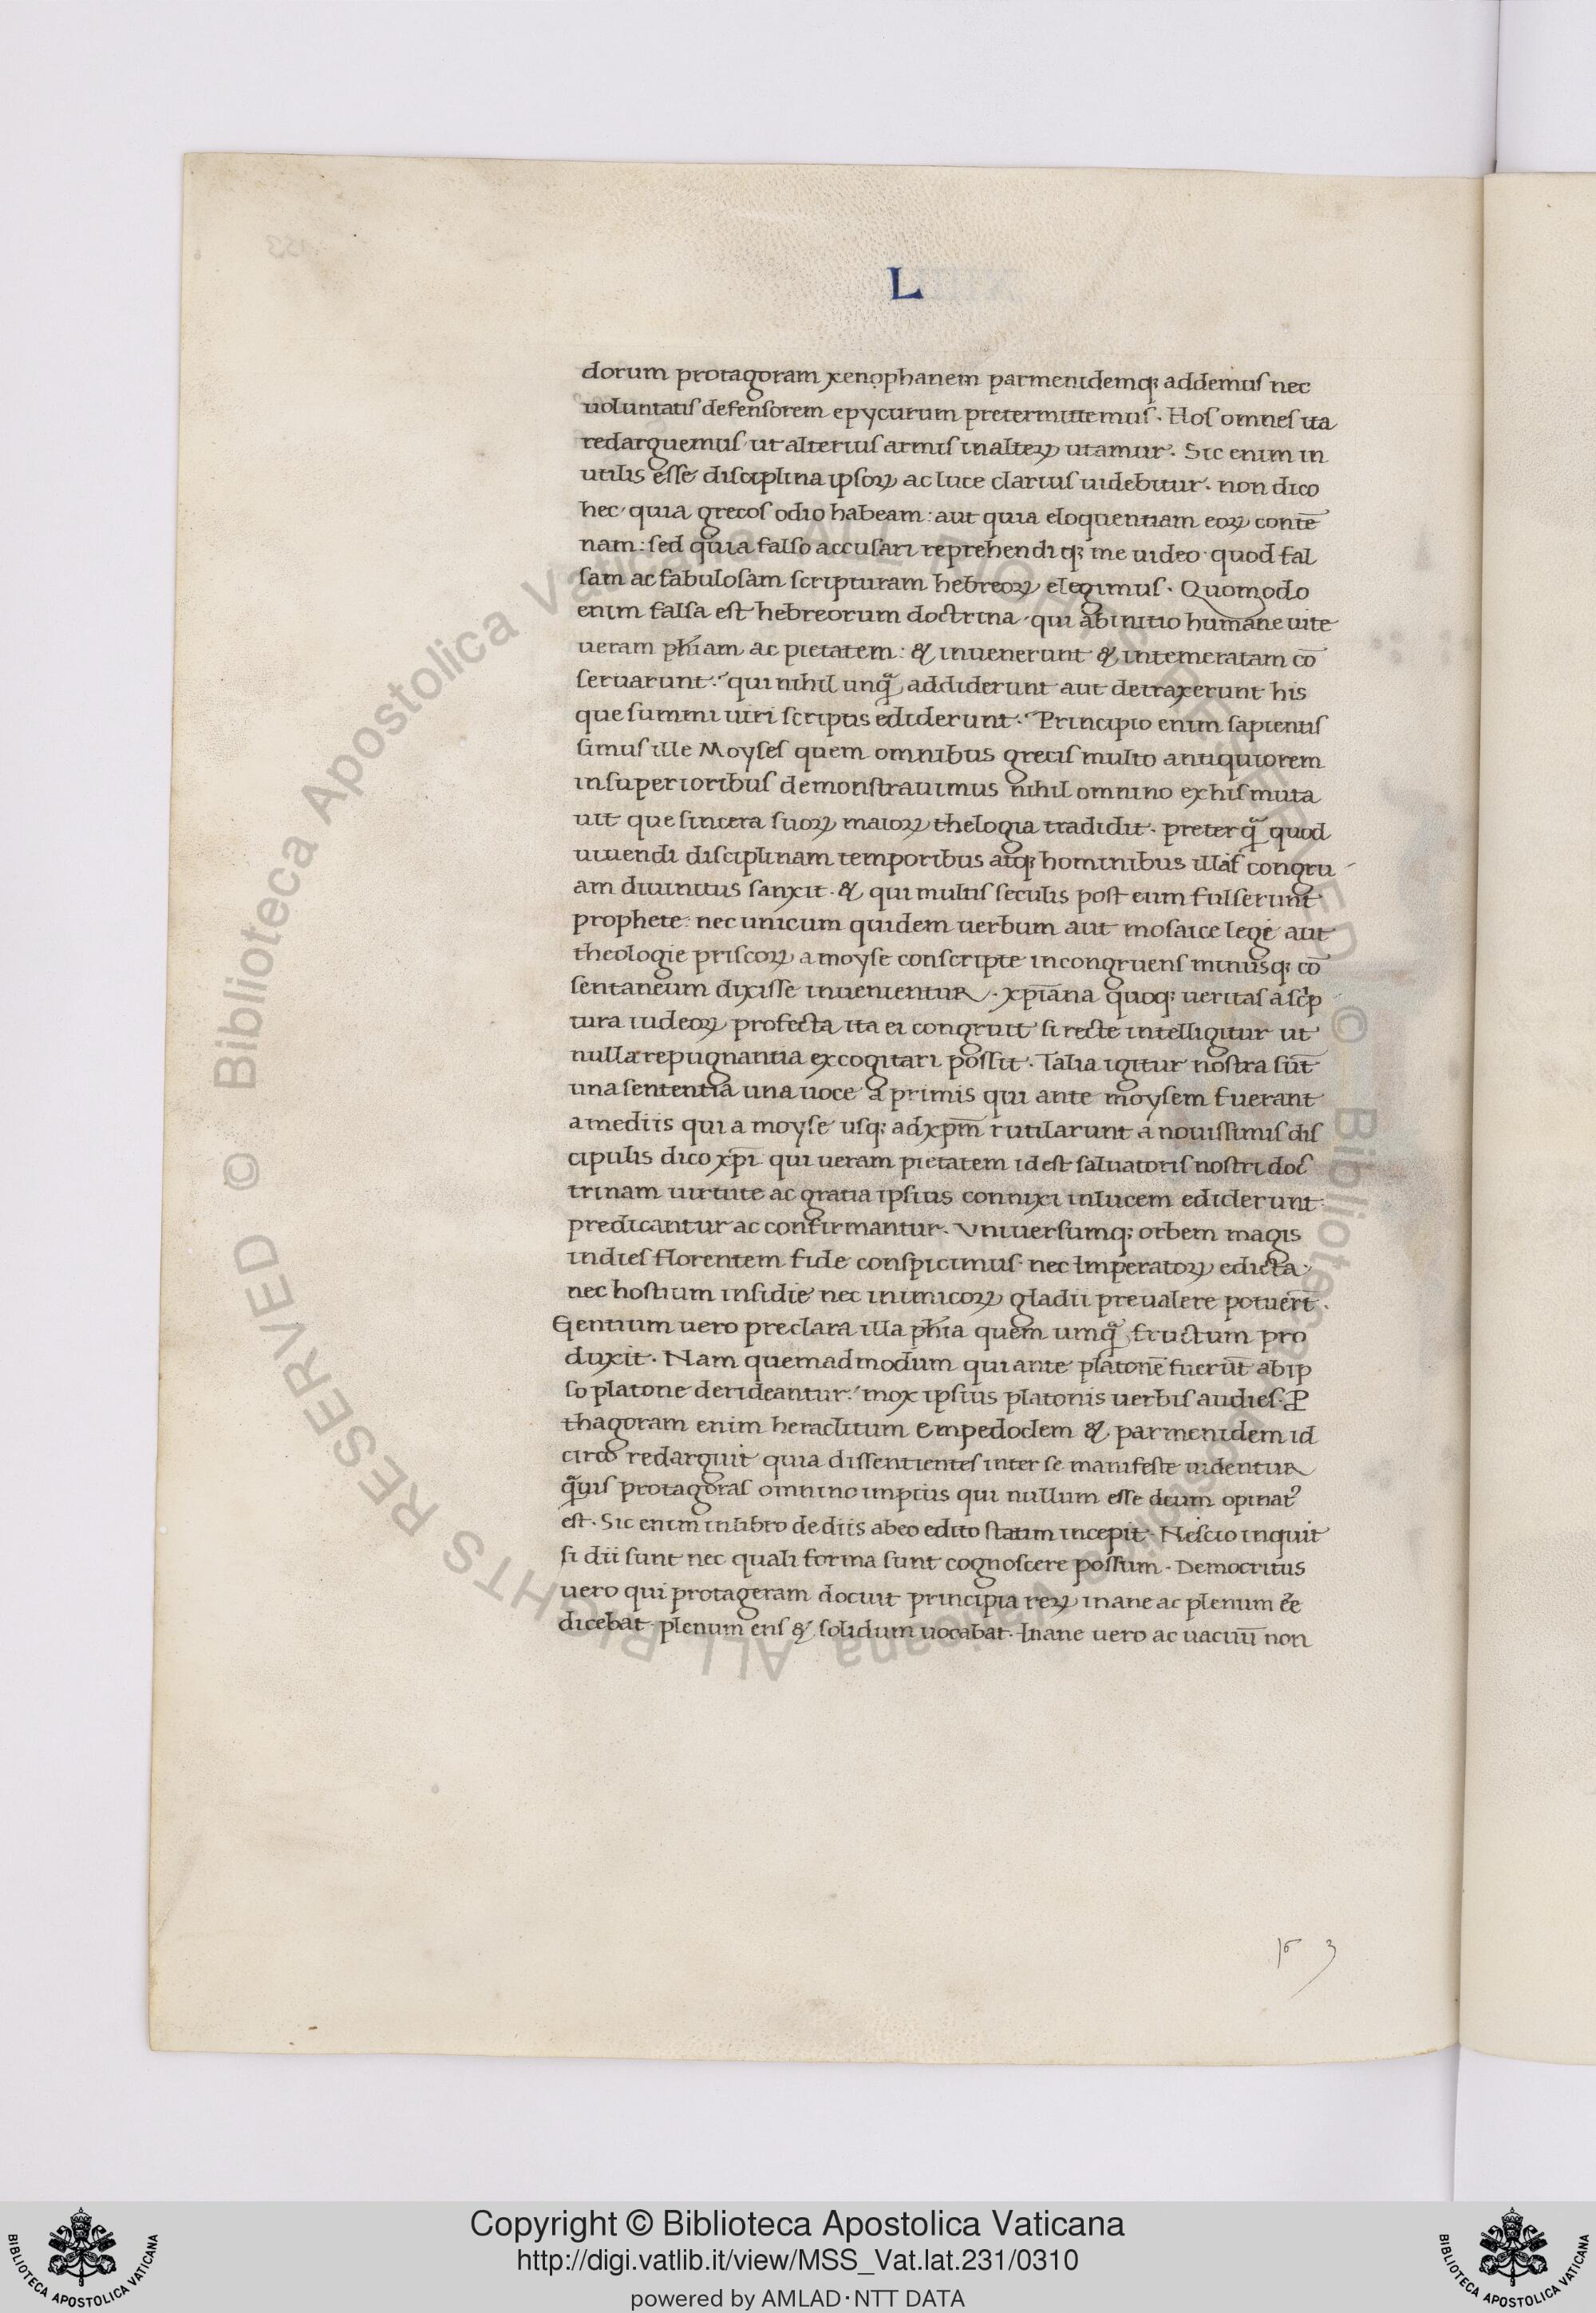 L
dorum protagoram xenophanem parmenidemq; addemus nec
uoluntatis defensorem epycurum pretermittemus. Hos omnes ita
redarguemus ut alterius armis in alteꝝ utamur. Sic enim in
utilis esse disciplina ipsoꝝ ac luce clarius uidebitur. non dico
hec quia grecos odio habeam: aut quia eloquentiam eoꝝ contē
nam: sed quia falso accusari reprehendi q; me uideo quod fal
sam ac fabulosam scripturam hebreoꝝ elegimus. Quomodo
enim falsa est hebreorum doctrina qui ab initio humane uite
ueram phiam ac pietatem: & inuenerunt & intemeratam cō
seruarunt: qui nihil unq̃ addiderunt aut detraxerunt his
que summi uiri scriptis ediderunt: Principio enim sapientis
simus ille Moyses quem omnibus grecis multo antiquiorem
in superioribus demonstrauimus nihil omnino ex his muta
uit que sincera suoꝝ maioꝝ thelogia tradidit. preter q̃ quod
uiuendi disciplinam temporibus atq; hominibus illas congru
am diuinitus sanxit. & qui multis seculis post eum fulserunt
prophete: nec unicum quidem uerbum aut mosaice legi aut
theologie priscoꝝ a moyse conscripte incongruens minusq; cō
sentaneum dixisse inuenientur. xp̄iana quoq; ueritas a scrip
tura iudeoꝝ profecta ita ei congruit si recte intelligitur ut
nulla repugnantia excogitari possit. Talia igitur nostra sūt
una sententia una uoce a primis qui ante moysem fuerant
a mediis qui a moyse usq; ad xp̄m rutilarunt a nouissimis dis
cipulis dico xp̄i qui ueram pietatem id est saluatoris nostri doc
trinam uirtute ac gratia ipsius connixi in lucem ediderunt
predicantur ac confirmantur. Vniuersumq; orbem magis
in dies florentem fide conspicimus nec Imperatoꝝ edicta
nec hostium insidie nec inimicoꝝ gladii preualere potuer̄t.
Gentium uero preclara illa phia quem umq̃ fructum pro
duxit. Nam quemadmodum qui ante platonē fuerūt ab ip
so platone derideantur: mox ipsius platonis uerbis audies. P
thagoram enim heraclitum Empedoclem & parmenidem id
circo redarguit quia dissentientes inter se manifeste uidentur
q̃uis protagoras omnino impius qui nullum esse deum opinat'
est. Sic enim in libro de diis ab eo edito statim incepit. Nescio inquit
si dii sunt nec quali forma sunt cognoscere possum. Democritus
uero qui protageram docuit principia reꝝ inane ac plenum eē
dicebat. plenum ens & solidum uocabat. Inane uero ac uacuū non
153
Copyright © Biblioteca Apostolica Vaticana
http://digi.vatlib.it/view/MSS_Vat.lat.231/0310
powered by AMLAD·NTT DATA
BIBLIOTECA APOSTOLICA VATICANA
BIBLIOTECA APOSTOLICA VATICANA
© Biblioteca Apostolica Vaticana ALL RIGHTS RESERVED
© Biblioteca Apostolica Vaticana ALL RIGHTS RESERVED